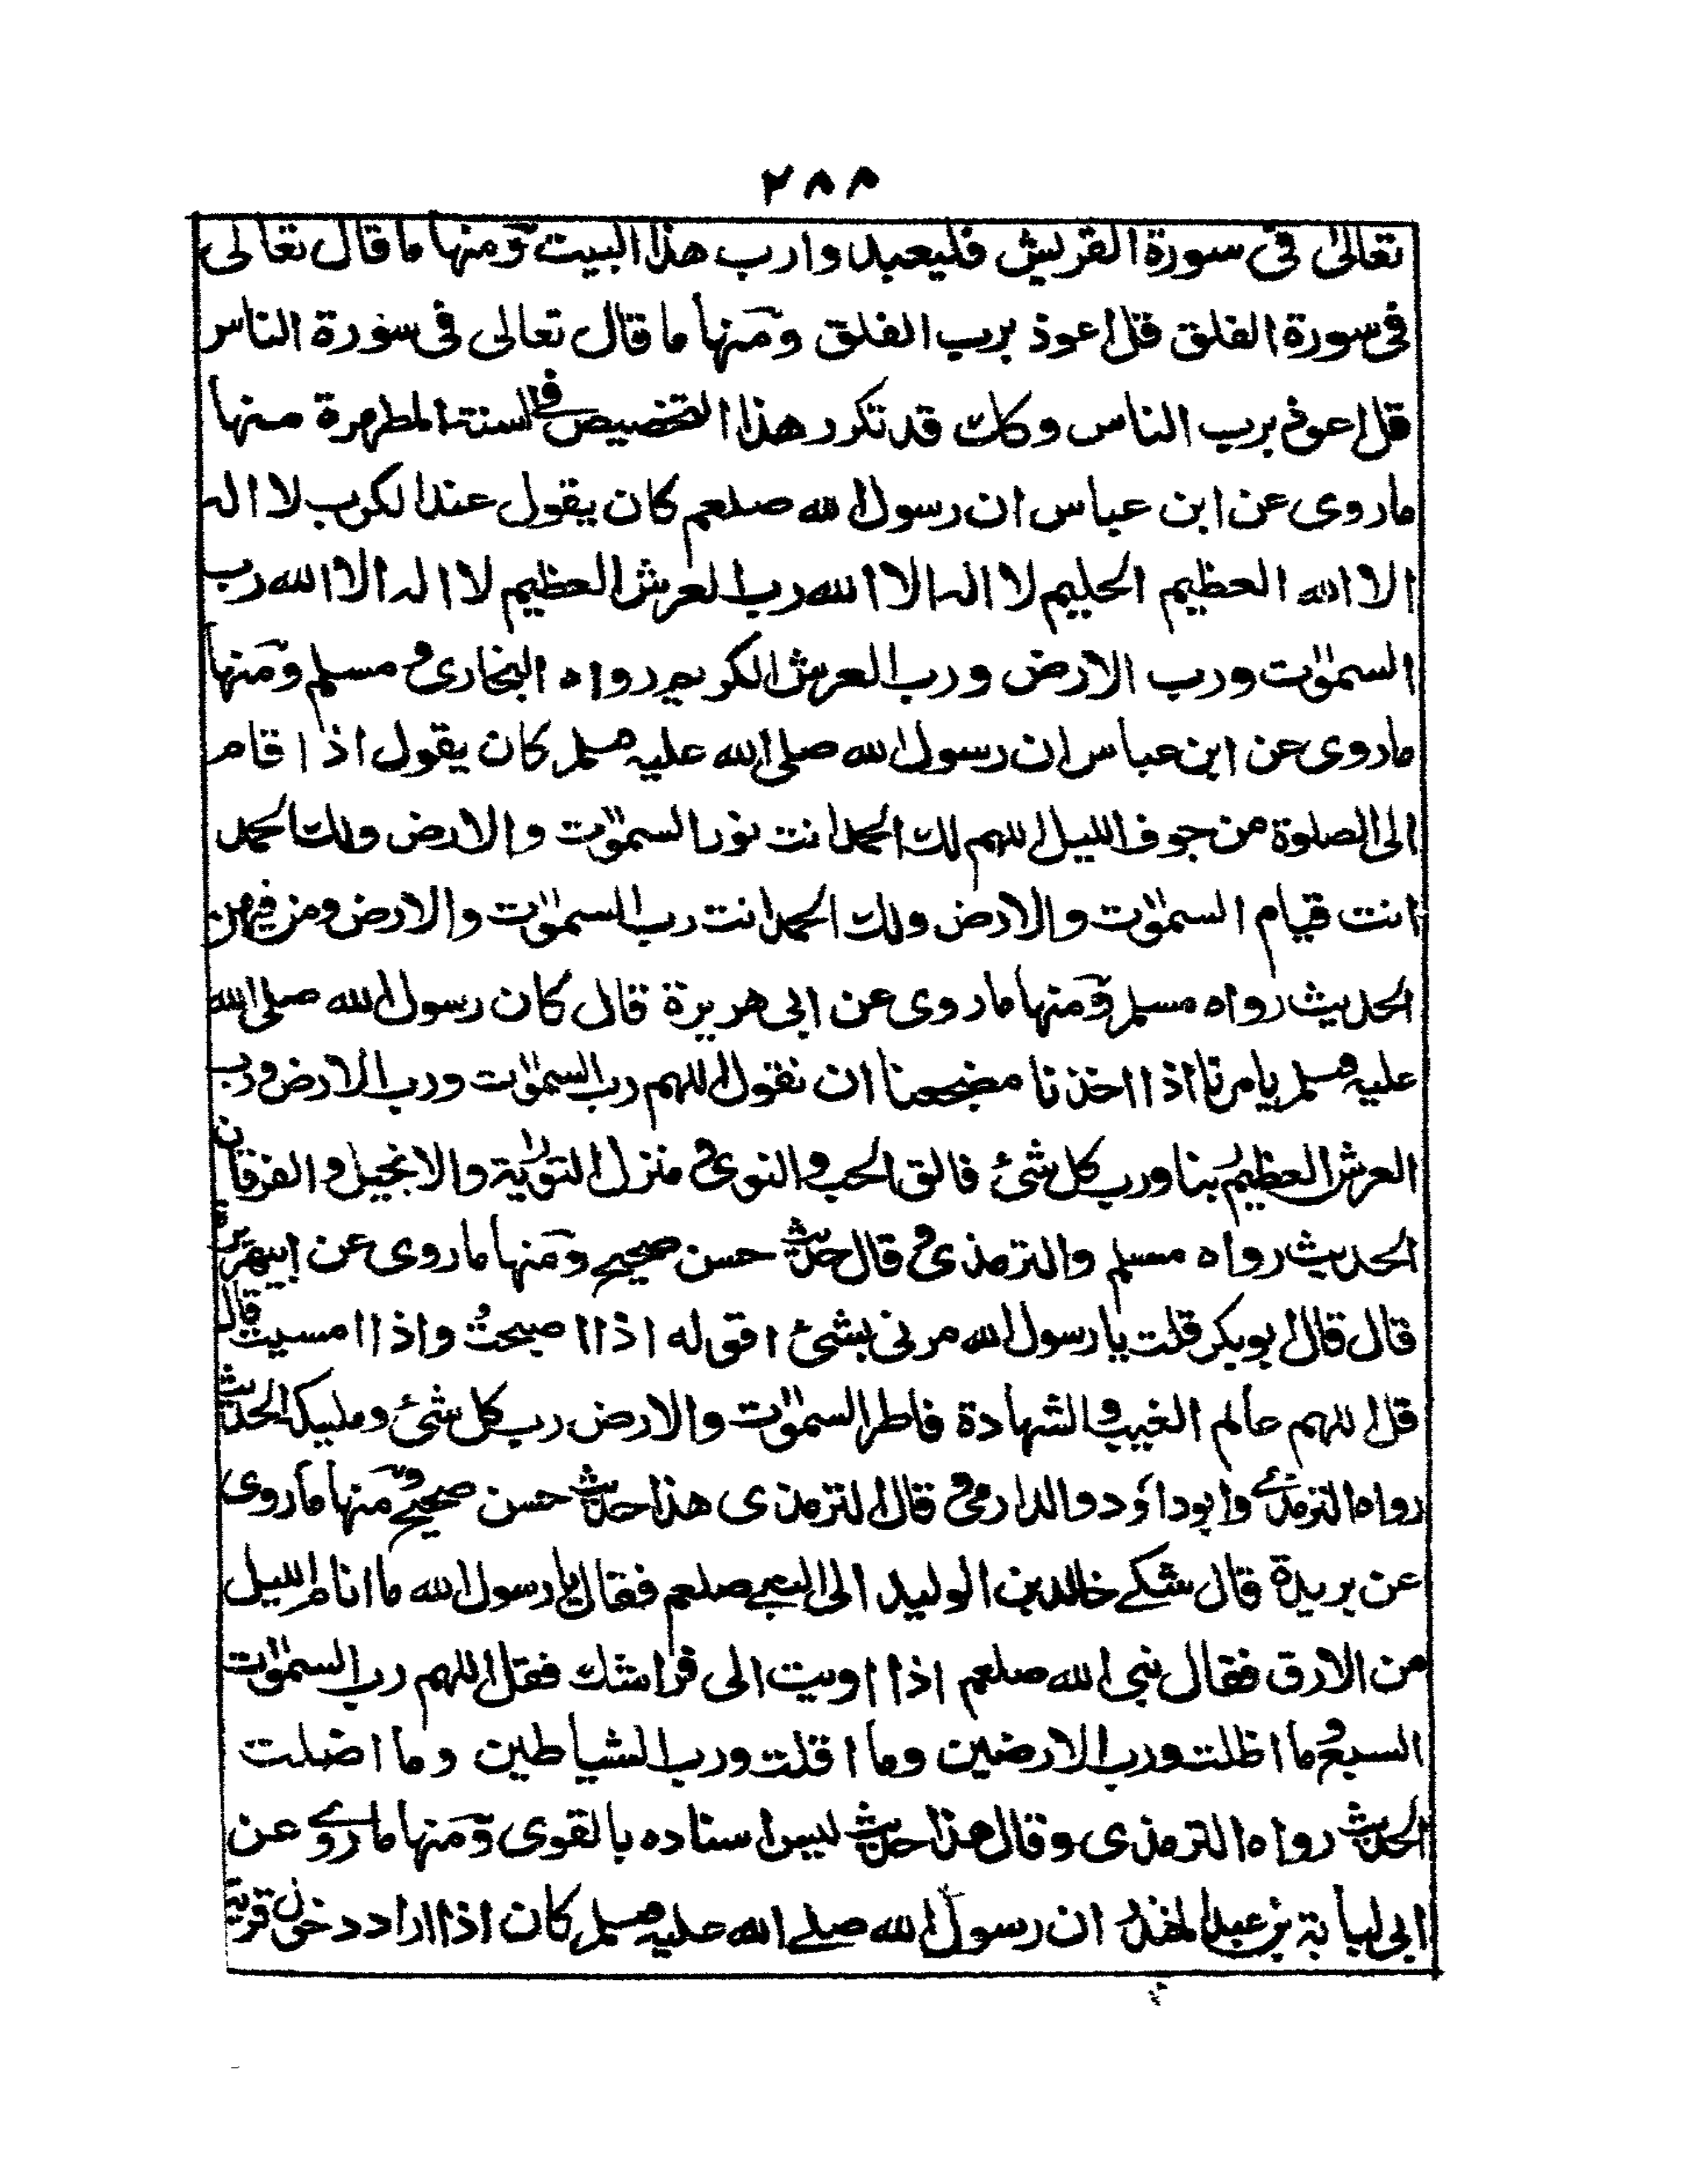 ٢٨٨
تعالىٰ فى سورة القريش فليعبدوا رب هذا البيت ومنها ما قال تعالى
فى سورة الفلق قل اعوذ برب الفلق ومنها ما قال تعالى فى سورة الناس
قل اعوذ برب الناس وكان قد تكرر هذا التخصيص فى السنة المطهرة منها
ما روى عن ابن عباس ان رسول الله صلعم كان يقول عند الكرب لا اله
الا الله العظيم الحليم لا اله الا الله رب العرش العظيم لا اله الا الله رب
السمٰوٰت ورب الارض ورب العرش الكريم رواه البخارى و مسلم ومنها
ما روى عن ابن عباس ان رسول الله صلى الله عليه وسلم كان يقول اذا قام
الى الصلوة من جوف الليل اللهم لك الحمد انت نور السمٰوٰت والارض ولك الحمد
انت قيام السمٰوٰت والارض ولك الحمد انت رب السمٰوٰت والارض ومن فيهن
الحديث رواه مسلم ومنها ما روى عن ابى هريرة قال كان رسول الله صلى الله
عليه وسلم يامرنا اذا اخذنا مضجعنا ان نقول اللهم رب السمٰوٰت ورب الارض ورب
العرش العظيم ربنا ورب كل شئ فالق الحب والنوى و منزل التورٰية والانجيل والفرقان
الحديث رواه مسلم والترمذى و قال حديث حسن صحيح ومنها ما روى عن ابيهريرة
قال قال ابوبكر قلت يا رسول الله مرنى بشئ اقوله اذا اصبحتُ واذا امسيت قال
قل اللهم عالم الغيب والشهادة فاطر السمٰوٰت والارض رب كل شئ ومليكه الحديث
رواه الترمذے وابوداؤد والدارمى و قال الترمذى هذا حديث حسن صحيح و منها ما روى
عن بريدة قال شكے خالد بن الوليد الى النبے صلعم فقال يا رسول الله ما انام الليل
من الارق فقال نبى الله صلعم اذا اويت الى فراشك فقل اللهم رب السمٰوٰت
السبع و ما اظلت ورب الارضين وما اقلت ورب الشياطين وما اضلت
الحديث رواه الترمذى وقال هذا حديث ليس اسناده بالقوى ومنها ما روے عن
ابى لبابة بن عبد المنذر ان رسول الله صلے الله عليه وسلم كان اذا اراد دخول قرية